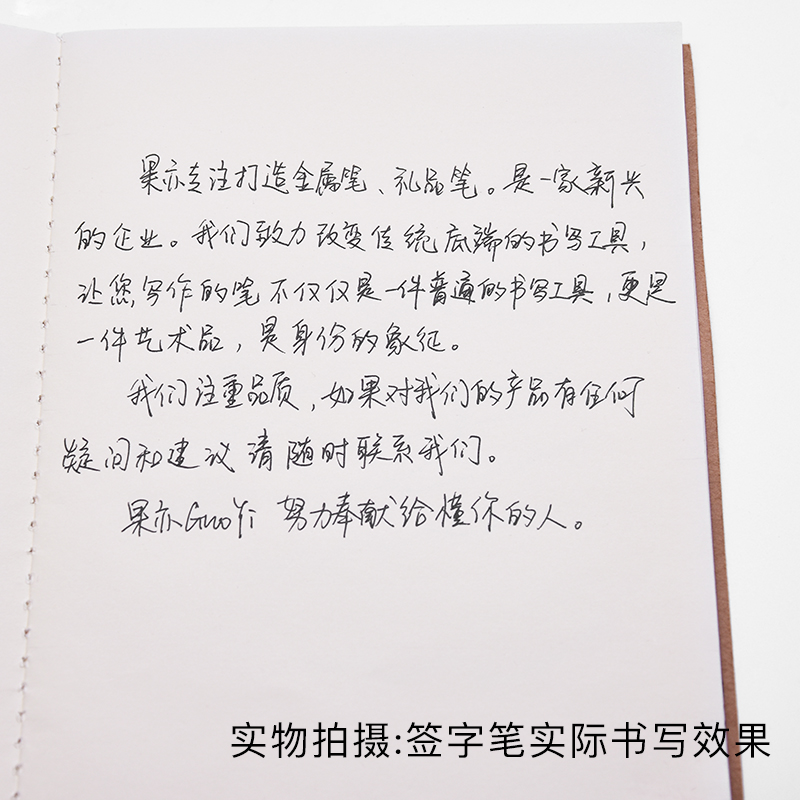 果亦专注打造金属笔、礼品笔。是一家新兴
的企业。我们致力改变传统底端的书写工具,
让您写作的笔不仅仅是一件普通的书写工具,更是
一件艺术品,是身份的象征。
我们注重品质,如果对我们的产品有任何
疑问和建议请随时联系我们。
果亦GuoYi 努力奉献给懂你的人。
实物拍摄:签字笔实际书写效果